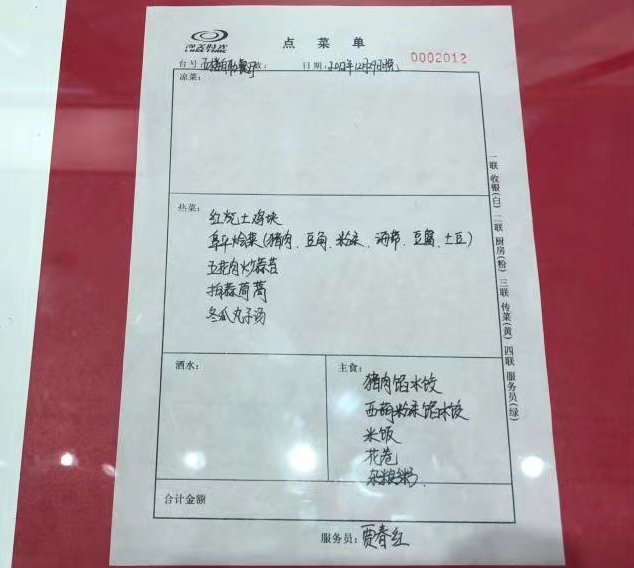 点菜单
0002012
台号:
日期: 2012年12月29日(晚)
凉菜:
热菜:
红烧土鸡块
阜平烩菜(猪肉、豆角、粉条、海带、豆腐、土豆)
五花肉炒蒜苔
拍蒜茼蒿
冬瓜丸子汤
酒水:
主食:
猪肉馅水饺
西葫粉条馅水饺
米饭
花卷
杂粮粥
合计金额
服务员: 贾春红
一联 收银(白) 二联 厨房(粉) 三联 传菜(黄) 四联 服务员(绿)